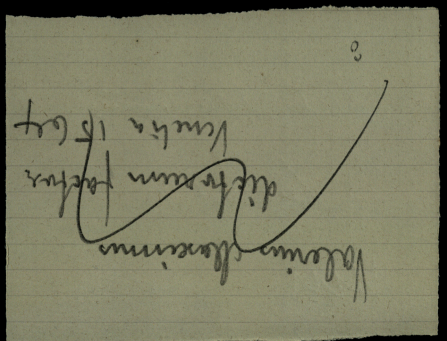 Valerius Maximus
dictorum factor
Venetia 1564
8